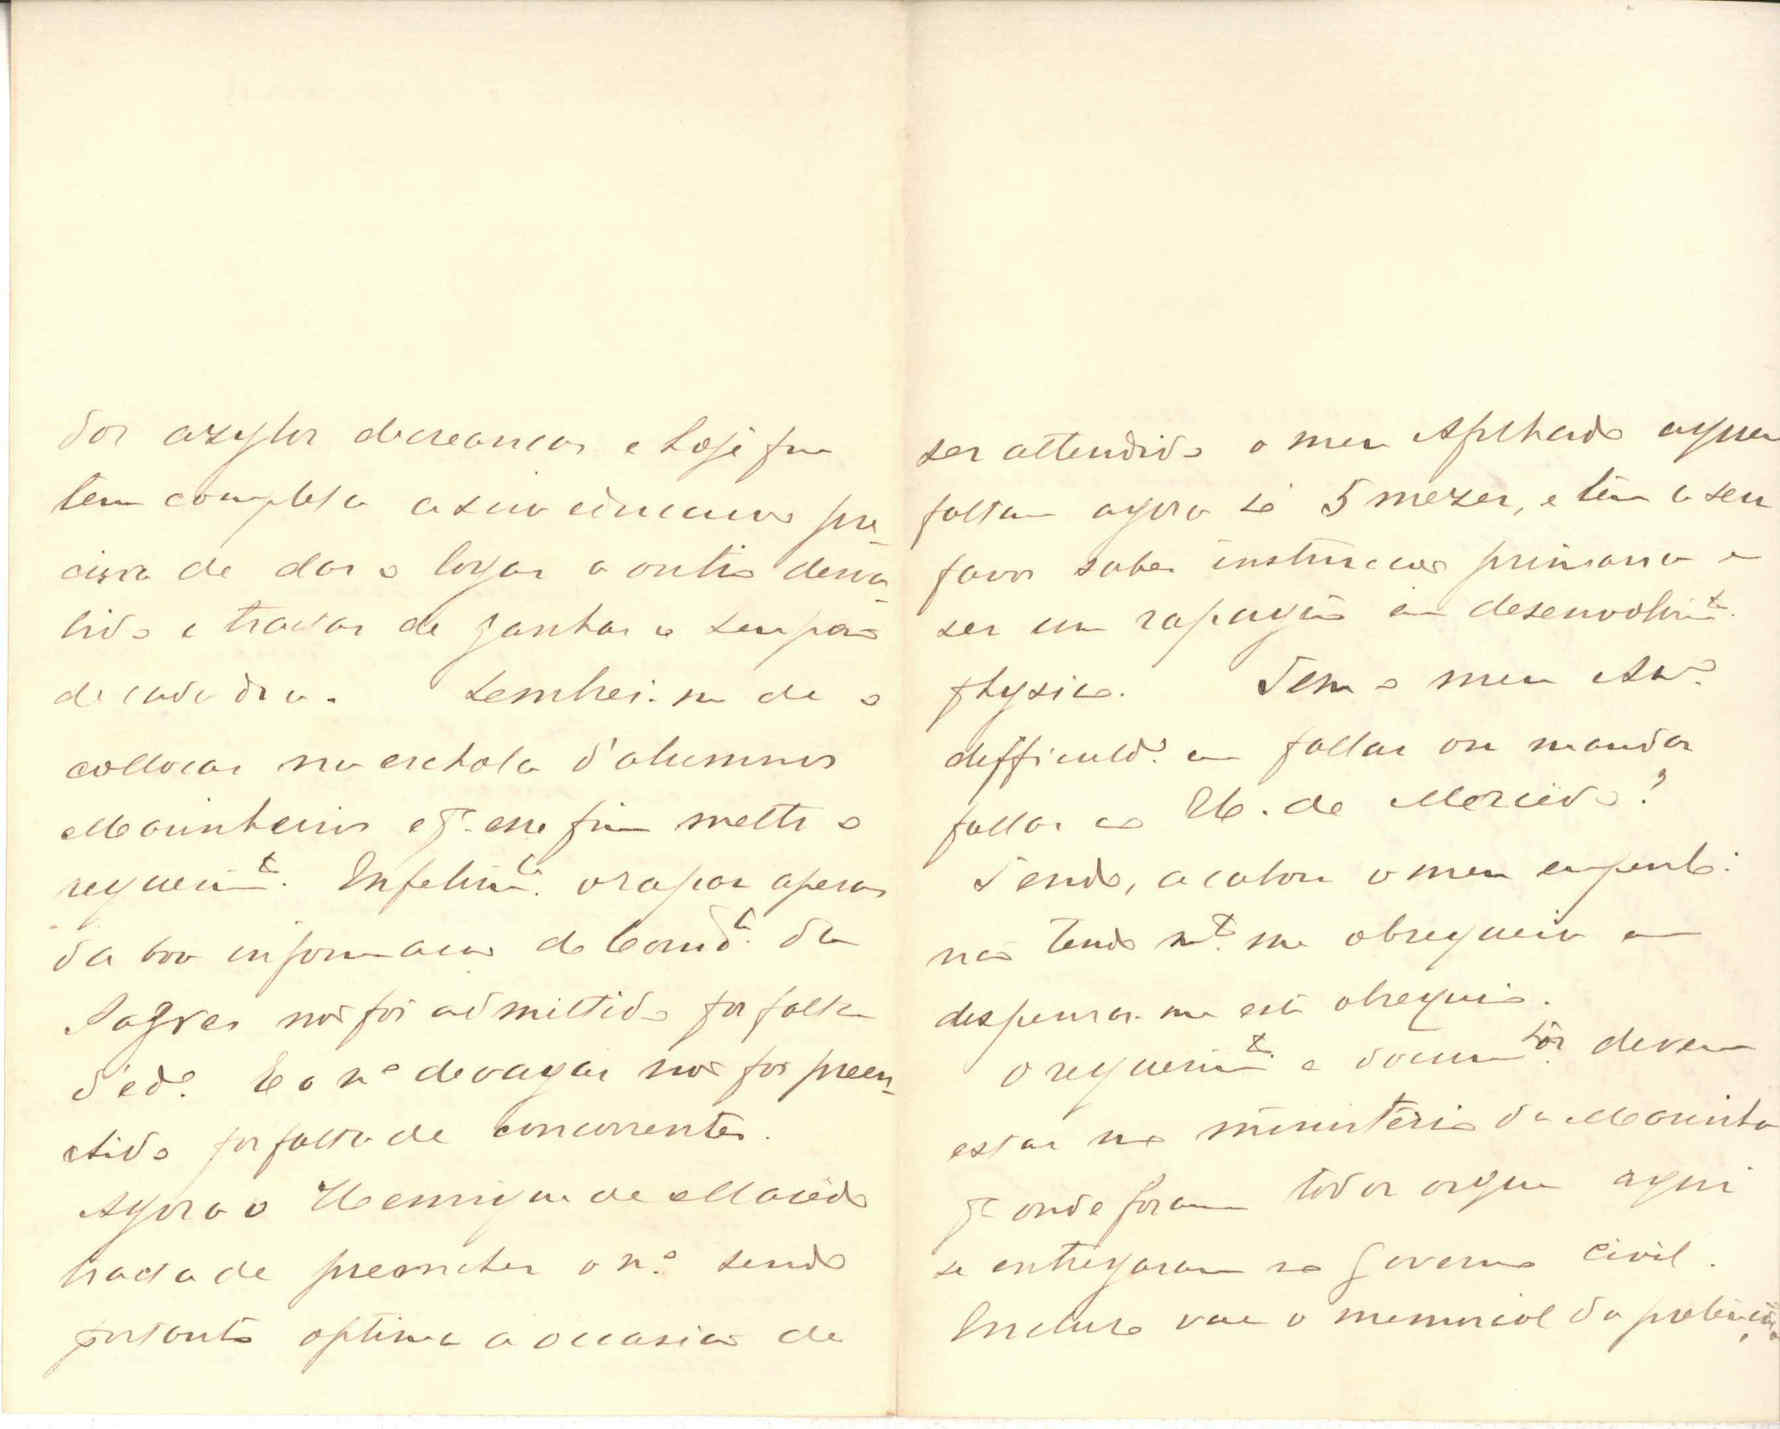 dos azylos de creanças e hoje que
tem completa a sua educação pre-
cisa de dar o logar a outro desva-
lido e tratar de ganhar o seu pão
de cada dia. Lembrei-me de o
collocar na eschola d'alumnos
Marinheiros e p.ª esse fim metti o
requerim.to. Infelizm.te o rapaz apesar
da boa informação do Comd.te da
Sagres não foi admittido por falta
d'ed.e. E o n.º de vagas não foi preen-
chido por falta de concorrentes.
Agora o Henrique de Macedo
trata de preencher o n.º sendo
portanto optima a occasião de
ser attendido o meu Afilhado a quem
faltam agora só 5 mezes, e tem a seu
favor saber instrucção primaria e
ser um rapagão em desenvolvim.to
physico. Tem o meu Am.º
difficuld.e em fallar ou mandar
fallar ao H. de Macedo?
Tendo, acabou o meu empenho:
não tendo m.to me obsequeia em
dispensar-me este obsequio.
O requerim.to e docum.tos devem
estar no ministerio da Marinha
p.ª onde foram todos os que aqui
se entregaram no Governo Civil.
Incluso vae o memorial da pretenção,